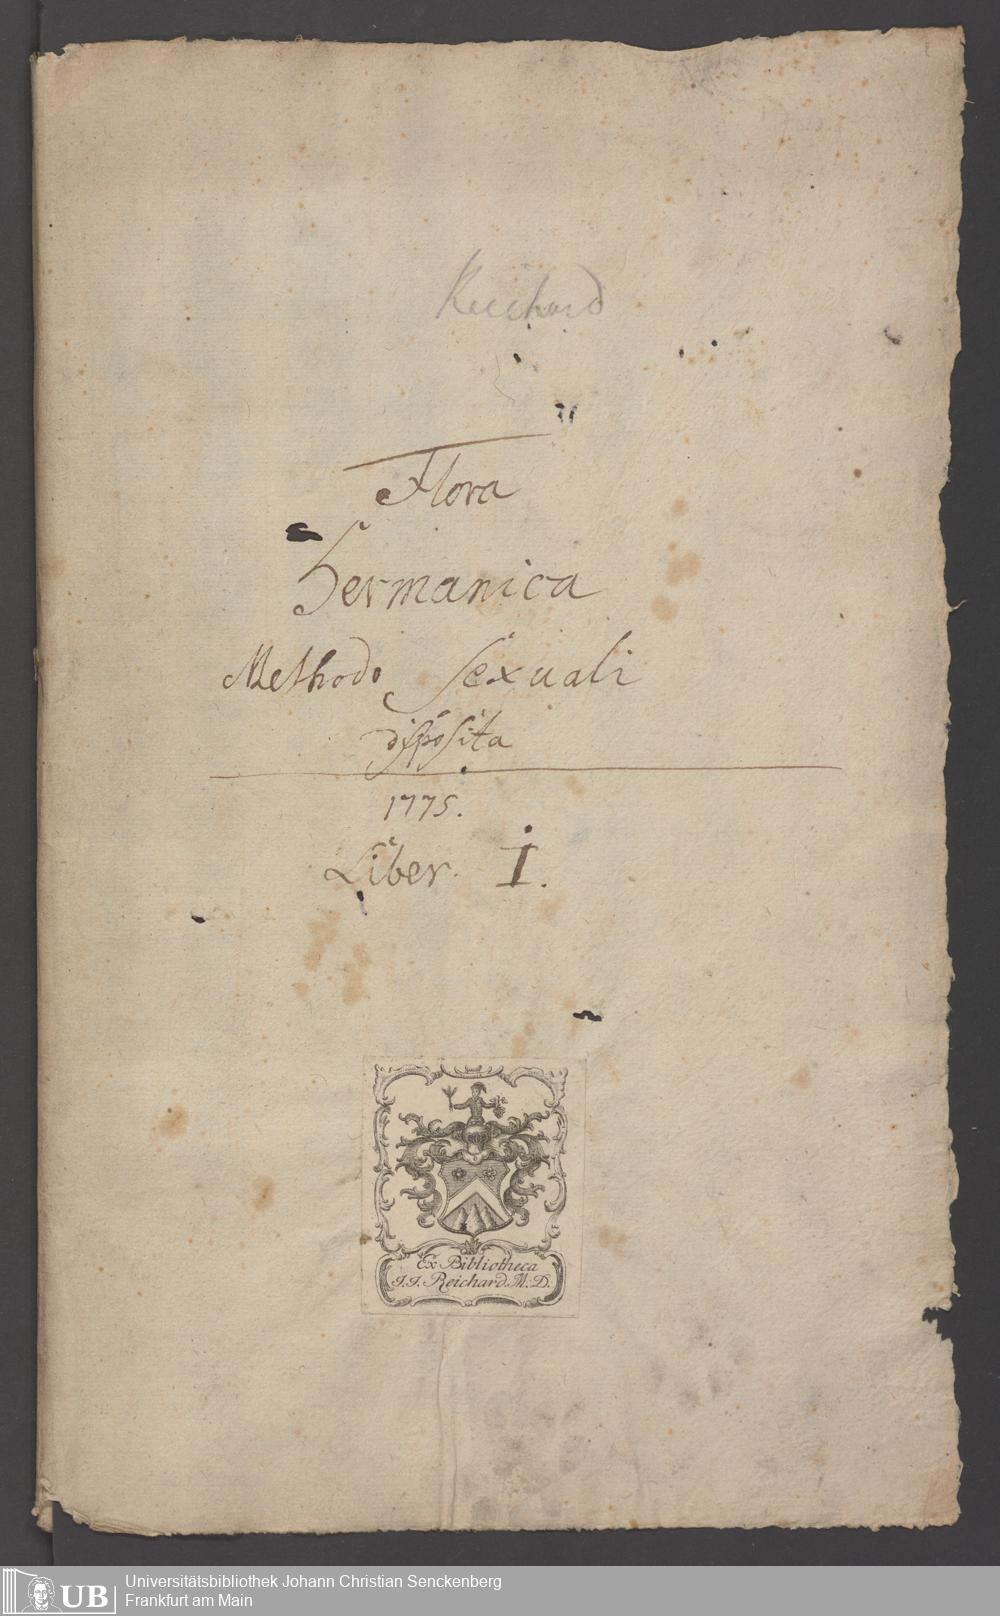 Reichard
Flora
Germanica
Methodo Sexuali
disposita
1775.
Liber. I.
Ex Bibliotheca
J. J. Reichard. M. D.
UB
Universitätsbibliothek Johann Christian Senckenberg
Frankfurt am Main